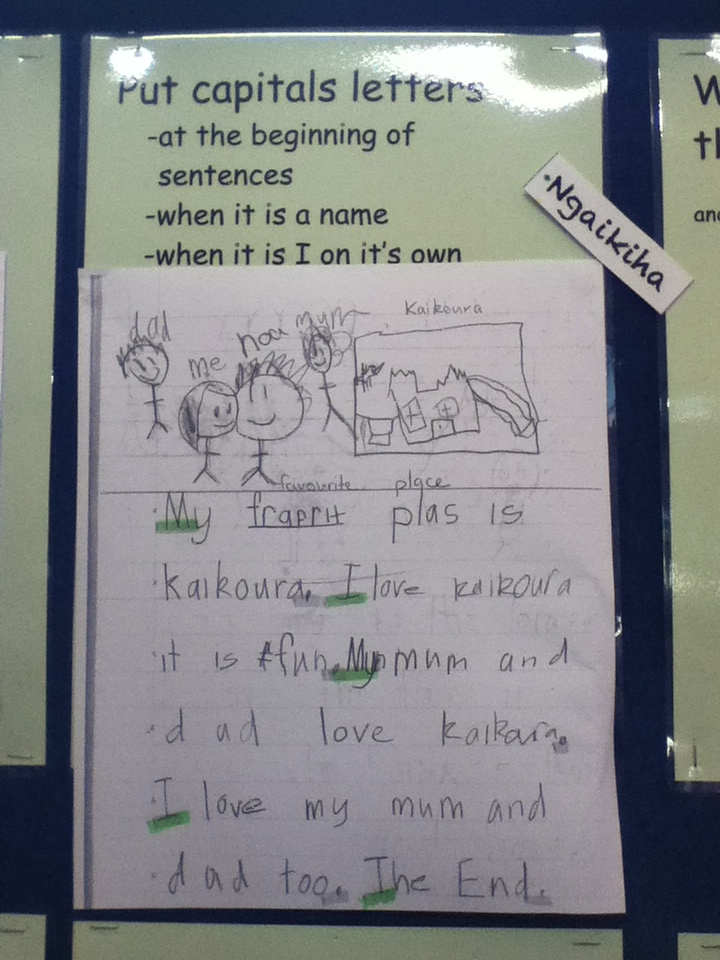 Put capitals letters
-at the beginning of
sentences
-when it is a name
-when it is I on it's own
Ngaikiha
W
th
and
dad
me
nou
mum
Kaikoura
favourite place
My fraprit plas is
Kaikoura. I love kaikoura
it is fun. My mum and
dad love kaikara.
I love my mum and
dad too. The End.